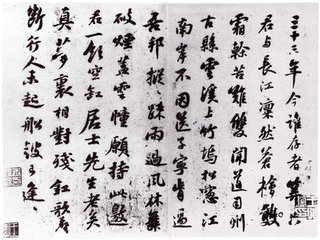 三十三年今誰存者算只
君與長江凜然蒼檜
霜榦苦難雙聞道司州
古縣雲溪上竹塢松窗江
南岸不因送子寧肯過
吾邦摐〻疎雨過風林舞
破煙蓋雲幢願持此邀
君一飲空缸居士先生老矣
真夢裏相對殘釭歌聲
斷行人未起船鼓已逢〻